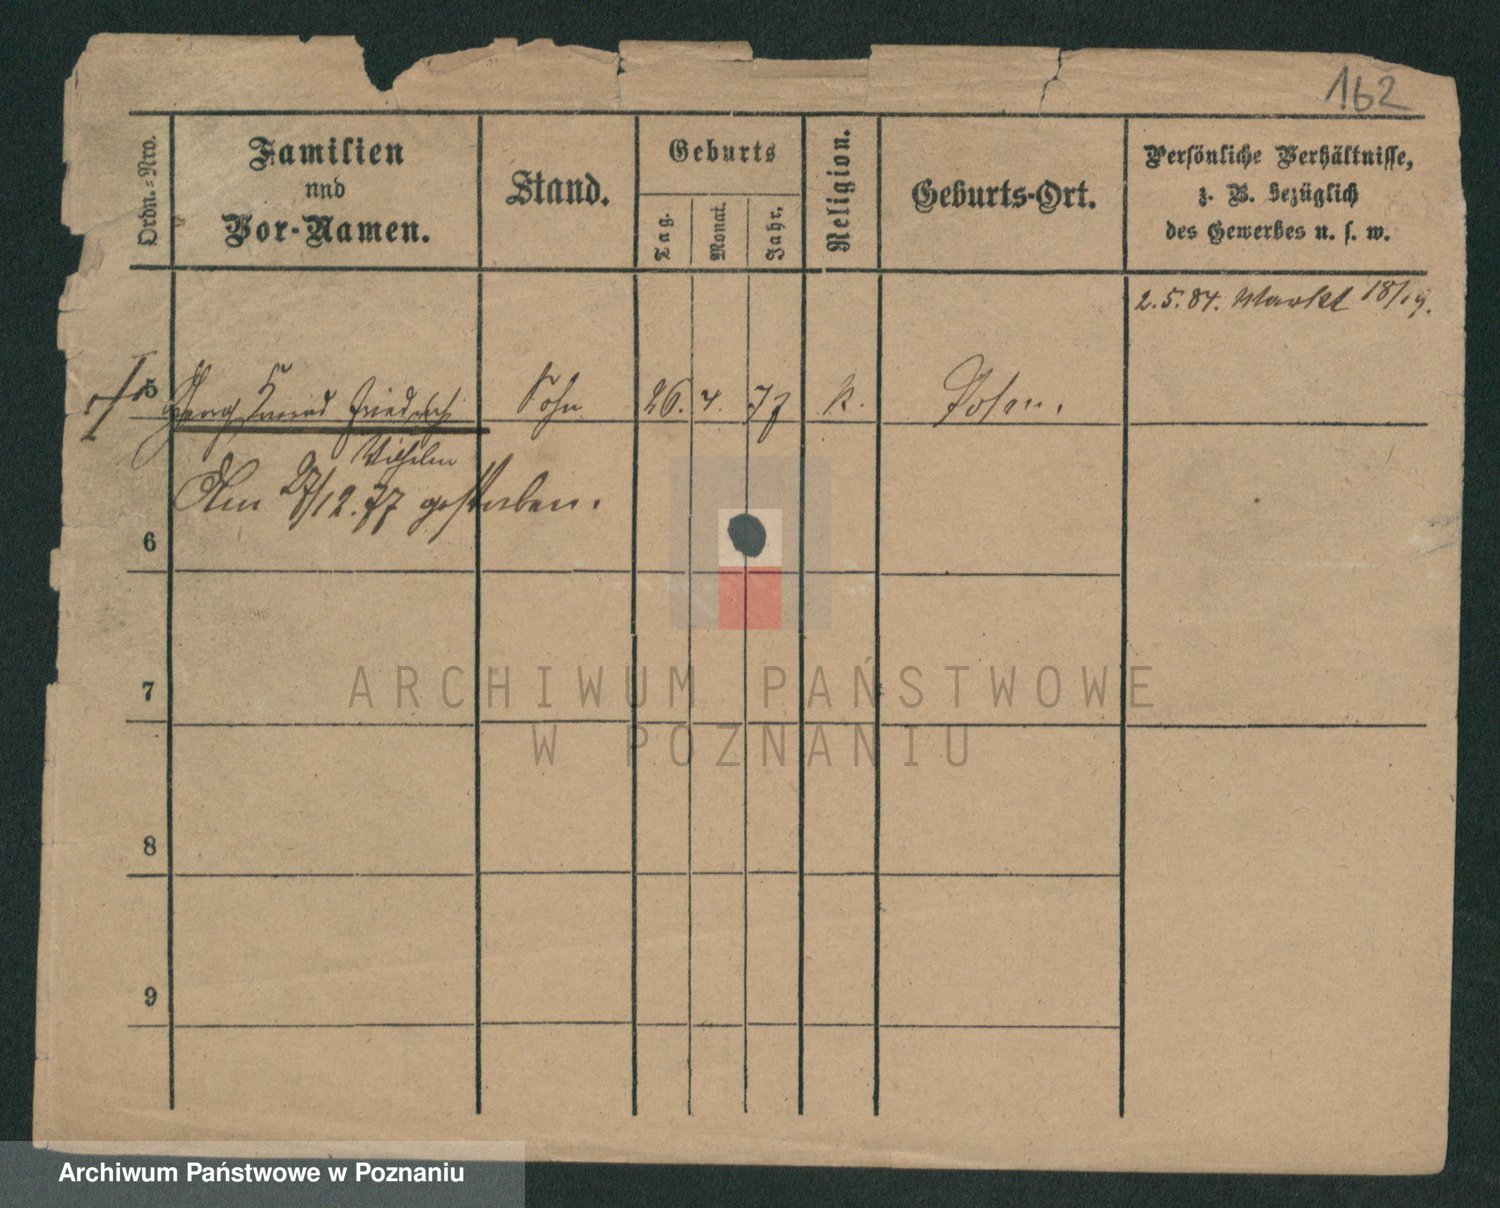 162
Ordn.-Nro.
Familien
und
Vor-Namen.
Stand.
Geburts
Tag.
Monat.
Jahr.
Religion.
Geburts-Ort.
Persönliche Verhältnisse,
z. B. bezüglich
des Gewerbes u. s. w.
2.5.84. Markt 18/19.
5 Georg Konrad Friedrich Sohn 26. 4. 77 k. Posen.
Wilhelm
Am 27/12.77 gestorben.
6
7
ARCHIWUM PAŃSTWOWE
W POZNANIU
8
9
Archiwum Państwowe w Poznaniu